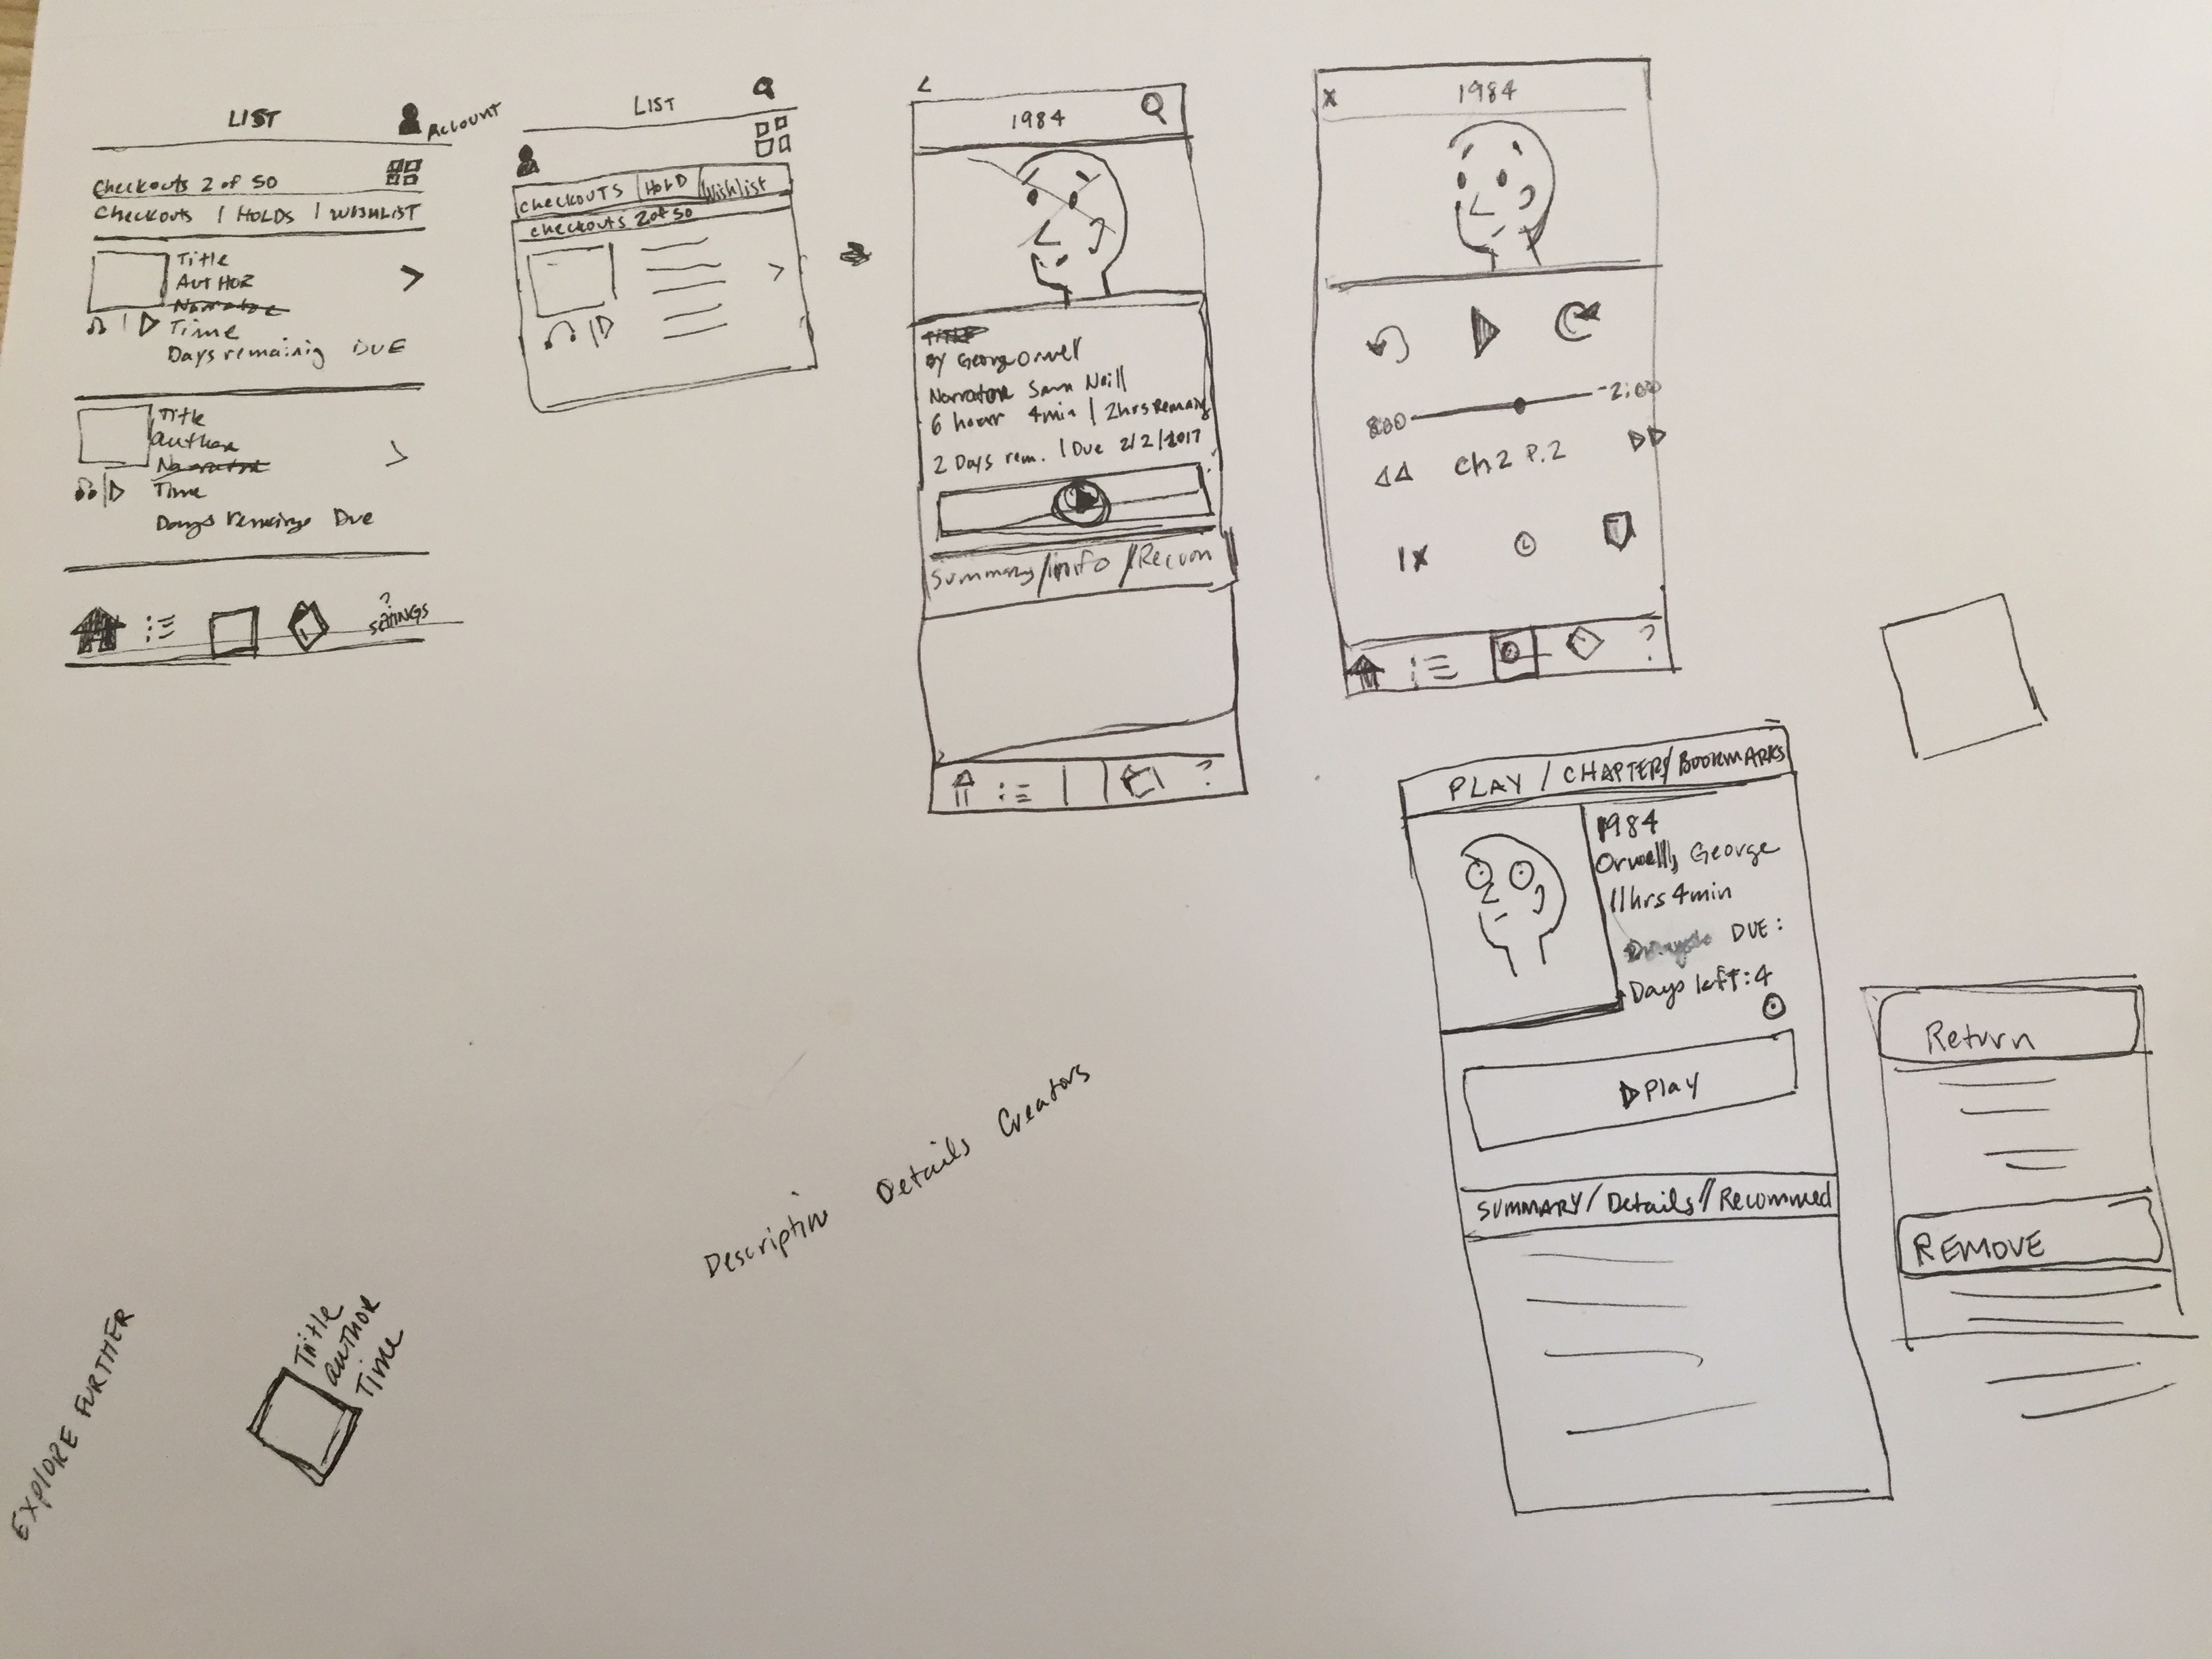 LIST
Account
Checkouts 2 of 50
Checkouts | HOLDS | WISHLIST
Title
AUTHOR
Narrator
Time
Days remainig DUE
Title
author
Narrator
Time
Days remaings Due
?
SETTINGS
LIST
CHECKOUTS HOLD Wishlist
checkouts 2 of 50
<
1984
TITLE
By George Orwell
Narrator Sam Neill
6 hour 4min | 2hrs Remaing
2 Days rem. | Due 2/2/2017
Summary/info/Recom
?
X 1984
-2:00
Ch2 P.2
1X
?
PLAY / CHAPTERS/BOOKMARKS
1984
Orwell, George
11hrs 4min
DUE:
Days left: 4
Play
SUMMARY/Details//Recommed
Return
REMOVE
Description Details Creators
EXPLORE FURTHER
Title
AUTHOR
Time